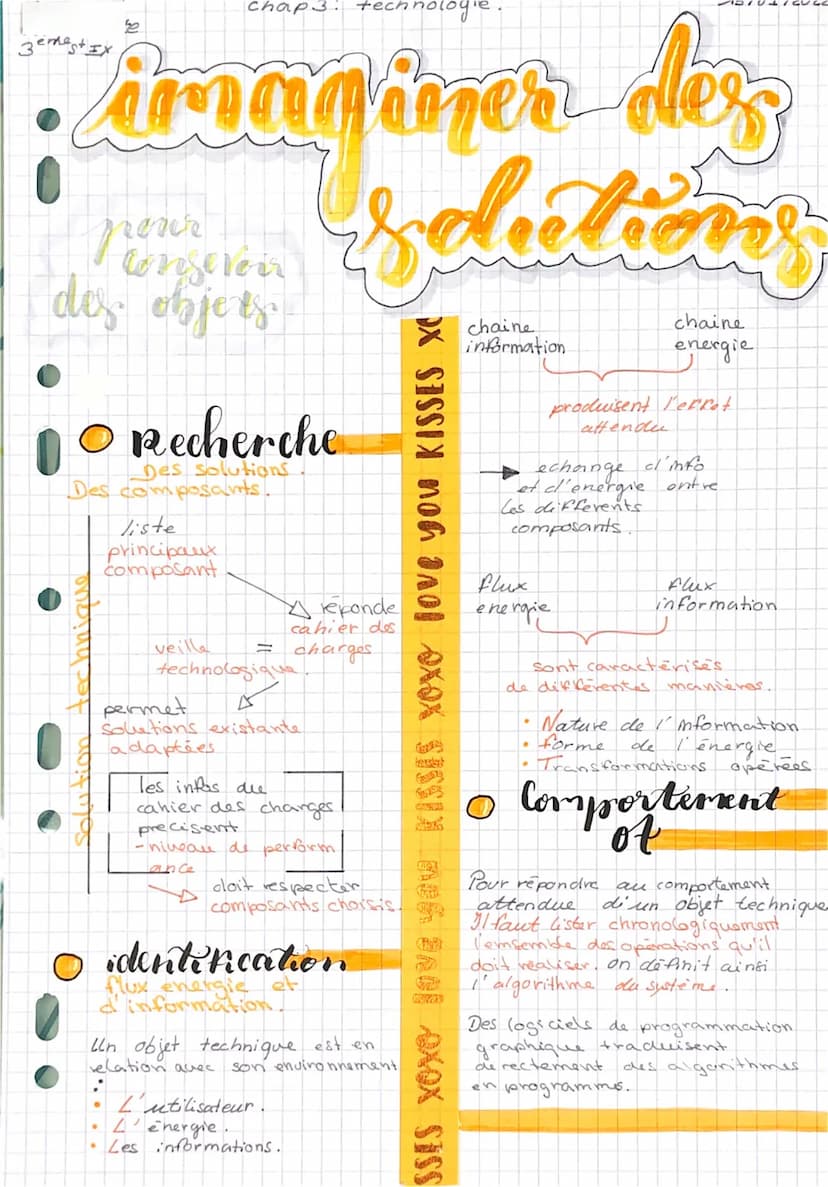 chap3: technologie.
3ème
imaginer des
solutions
pour
concevoir
des objets
Recherche
Des solutions.
Des composants.
solution technique
liste
principaux
composant
réponde
cahier des
charges
=
veille
technologique.
permet
solutions existante
adaptées
les infos du
cahier des charges
precisent
-niveau de perform
ance
doit respecter
composants choisis.
identification
flux énergie et
d'information.
Un objet technique est en
relation avec son environnement
:
• L'utilisateur.
• L'énergie.
• Les informations.
SSES xoxo love you KISSES xoxo love you KISSES xo
chaine
information
chaine
energie
produisent l'effet
attendu
→ echange d'info
et d'energie entre
les differents
composants.
flux
energie
flux
information
sont caractérisés
de différentes manières.
• Nature de l'information
• forme de l'énergie
• Transformations opérées
Comportement
OT
Pour répondre au comportement
attendue d'un objet technique
Il faut lister chronologiquement
l'emsemble des opérations qu'il
doit realiser. on définit ainsi
l'algorithme du système.
Des logiciels de programmation
graphique traduisent
derectement des algorithmes
en programms.